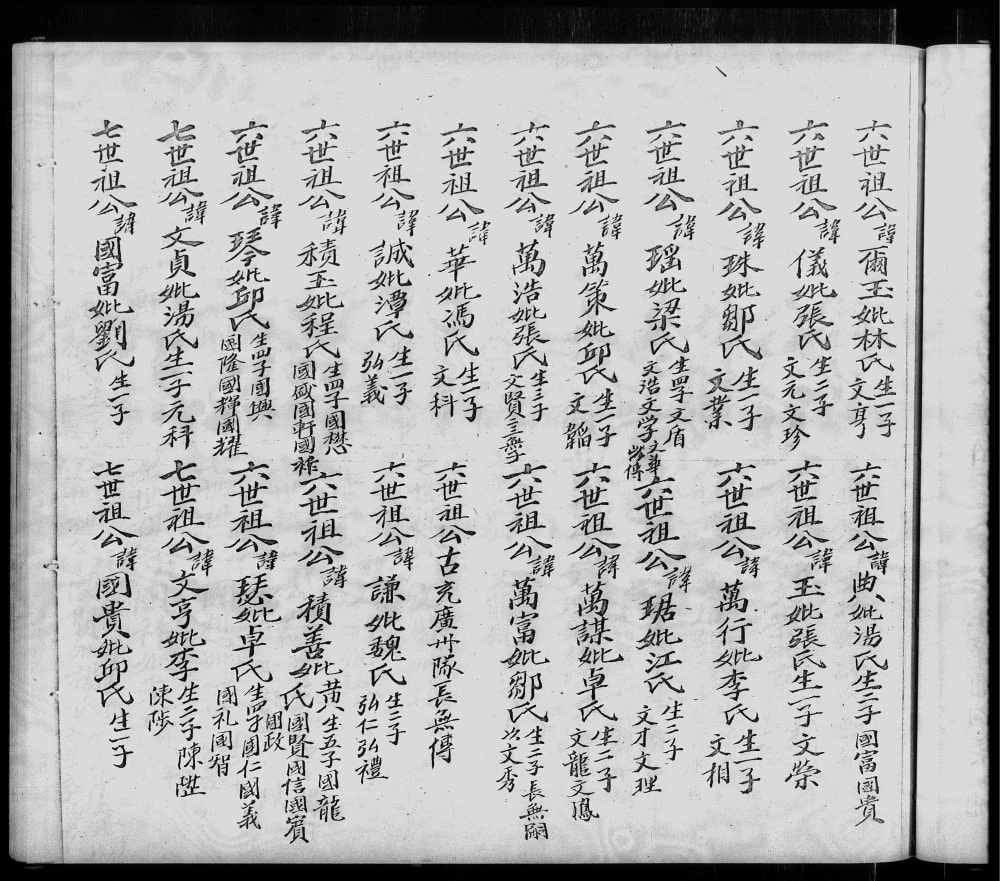 六世祖公諱爾玉妣林氏生一子文亨
六世祖公諱典妣湯氏生二子國富國貴
六世祖公諱儀妣張氏生二子文元文珍
六世祖公諱玉妣張氏生一子文榮
六世祖公諱珠妣鄒氏生一子文業
六世祖公諱萬行妣李氏生一子文相
六世祖公諱瑶妣梁氏生四子文盾文浩文学文華
六世祖公諱琚妣江氏生二子文才文理
六世祖公諱萬策妣邱氏生一子文韜
六世祖公諱萬謀妣卓氏生二子文龍文鳳
六世祖公諱萬浩妣張氏生三子文賢
六世祖公諱萬富妣鄒氏生二子長無嗣次文秀
六世祖公諱華妣馮氏生一子文科
六世祖公古充廣州隊長無傳
六世祖公諱誠妣潭氏生一子弘義
六世祖公諱謙妣魏氏生二子弘仁弘禮
六世祖公諱積玉妣程氏生四子國懋國盛國軒國祿
六世祖公諱積善妣黄氏生五子國龍國賢國信國賓國政
六世祖公諱琴妣邱氏生四子國興國隆國輝國耀
六世祖公諱瑟妣卓氏生四子國仁國義國礼國智
七世祖公諱文貞妣湯氏生一子元科
七世祖公諱文亨妣李生三子陳陞陳陟
七世祖公諱國富妣劉氏生一子
七世祖公諱國貴妣邱氏生二子